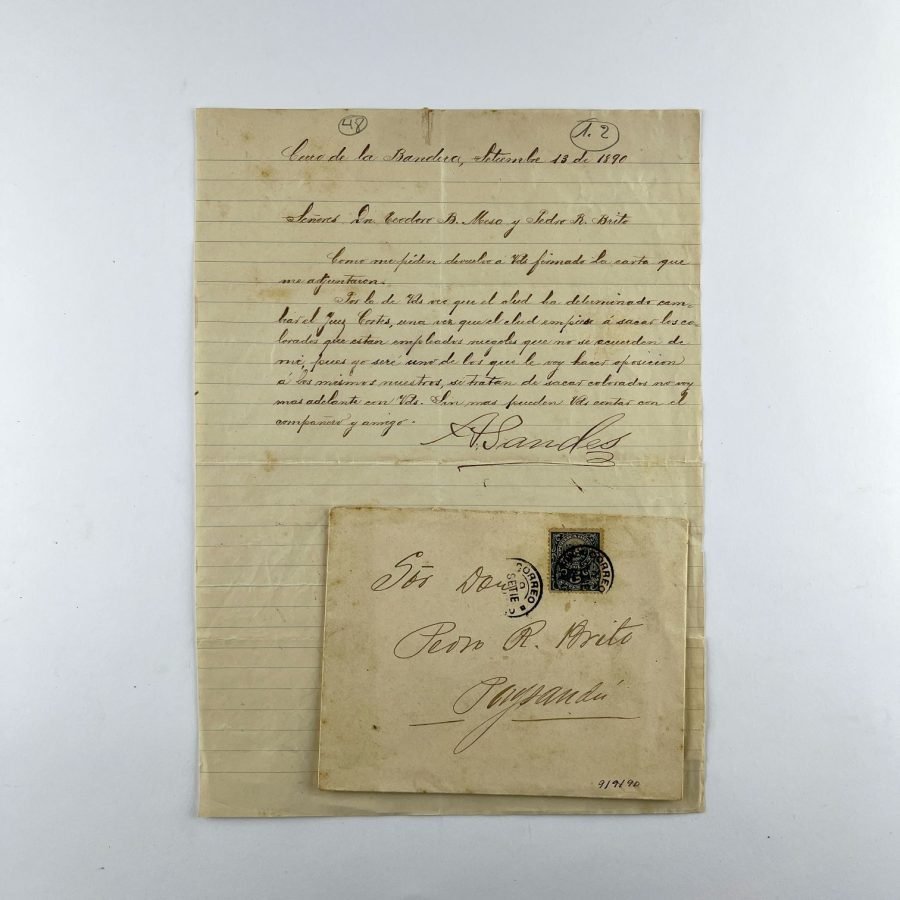 48
1. 2
Cerro de la Bandera, Setiembre 13 de 1890
Señores Dn Teodoro B. Mesa y Pedro R. Brito
Como me piden devuelvo á Vds firmado la carta que
me adjuntaron.
Por la de Vds veo que el clud ha determinado cam-
biar el Juez Cortes, una vez que el clud empiese á sacar los co-
lorados que estan empleados ruegoles que no se acuerden de
mi, pues yo seré uno de los que le voy hacer oposicion
á los mismos nuestros, se tratan de sacar colorados no voy
mas adelante con Vds. Sin mas pueden Vds contar con el
compañero y amigo.
A. Sandes
Sór Don
Pedro R. Brito
Paysandú
CORREO
SETIE
CORREO
9/9/90